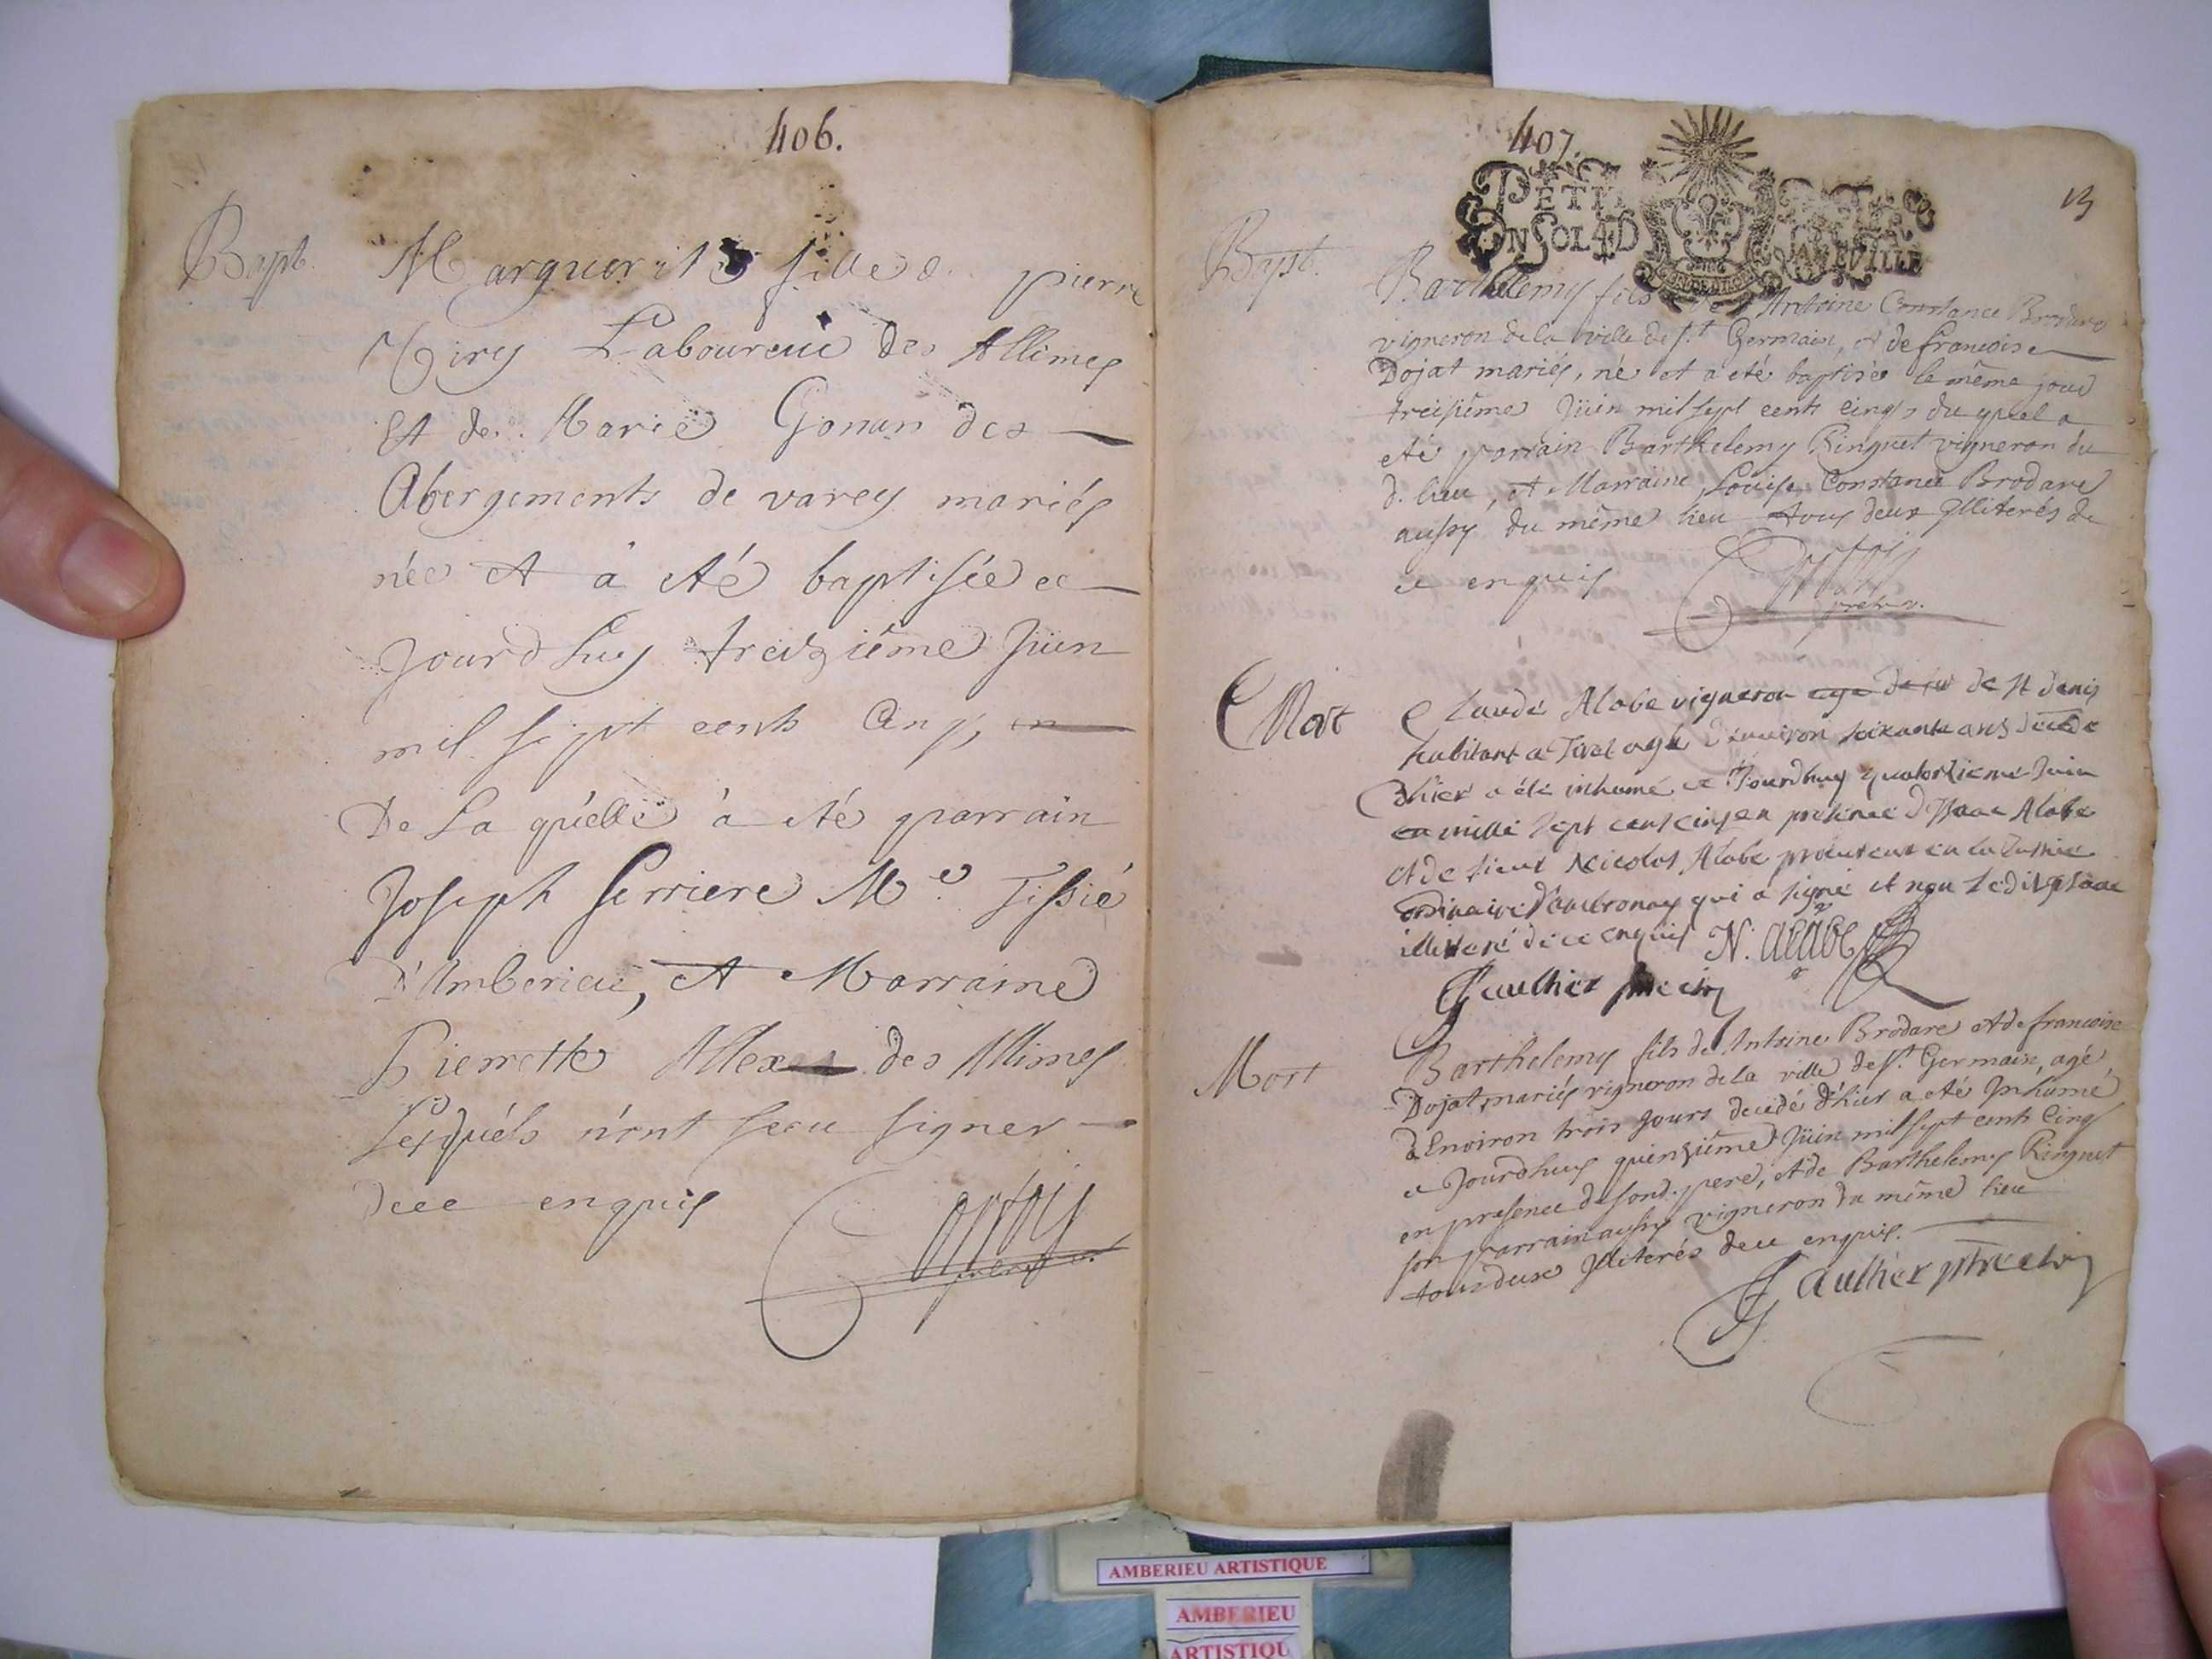 406.
Bapt. Marguerite fille d pierre
Laboureur des Allimes
Et de Marie Gonan des
Abergements de varey mariés
née et à été baptisée ce
jourdhuy treiziéme Juin
mil sept cents Cinq, en
De La quélle à été parrain
Joseph ferriere M.e Tissié
D'Amberieu, et Marraine
Pierrette Allex des Allimes
Lesquéls n'ont sceu signer
dece enquis
407.
13
PETIT
UN SOL 4 D
LA FEUILLE
Bapt. Barthelemy fils de Antoine Constance Brodare
vigneron de la ville de s.t Germain, et de francoise
Dojat mariés, né et a eté baptisée le même jour
treisiême Juin mil sept cents cinq, du quel a
eté parrain Barthelemy Ringuet vigneron du
d. lieu, et Marraine Louise Constance Brodare
aussy du même lieu tous deux Illiterés de
ce enquis
Mort Claude Alabe vigneron age de st denis
habitant a Tiret agé d'environ soixante ans decede
d'hier a été inhumé ce Jourdhuy quatorzieme Juin
en mille sept cent cinq en presence d'Isaac Alabe
et de sieur Nicolas Alabe procureur en la Justice
ordinaire d'ambronay qui a signé et non ledit Isaac
illiteré de ce enquis N. alabe
Gaulthier
Mort Barthelemy fils de Antoine Brodare et de francoise
Dojat mariés vigneron de la ville de s.t Germain, agé
d'Environ trois jours decedé d'hier a eté Inhumé
ce Jourdhuy quinziême Juin mil sept cents Cinq
en presence de son d. pere, et de Barthelemy Ringuet
son parrain aussy vigneron du même lieu
tous deux Illiterés dece enquis.
Gaulthier
AMBERIEU ARTISTIQUE
AMBERIEU
ARTISTIQU